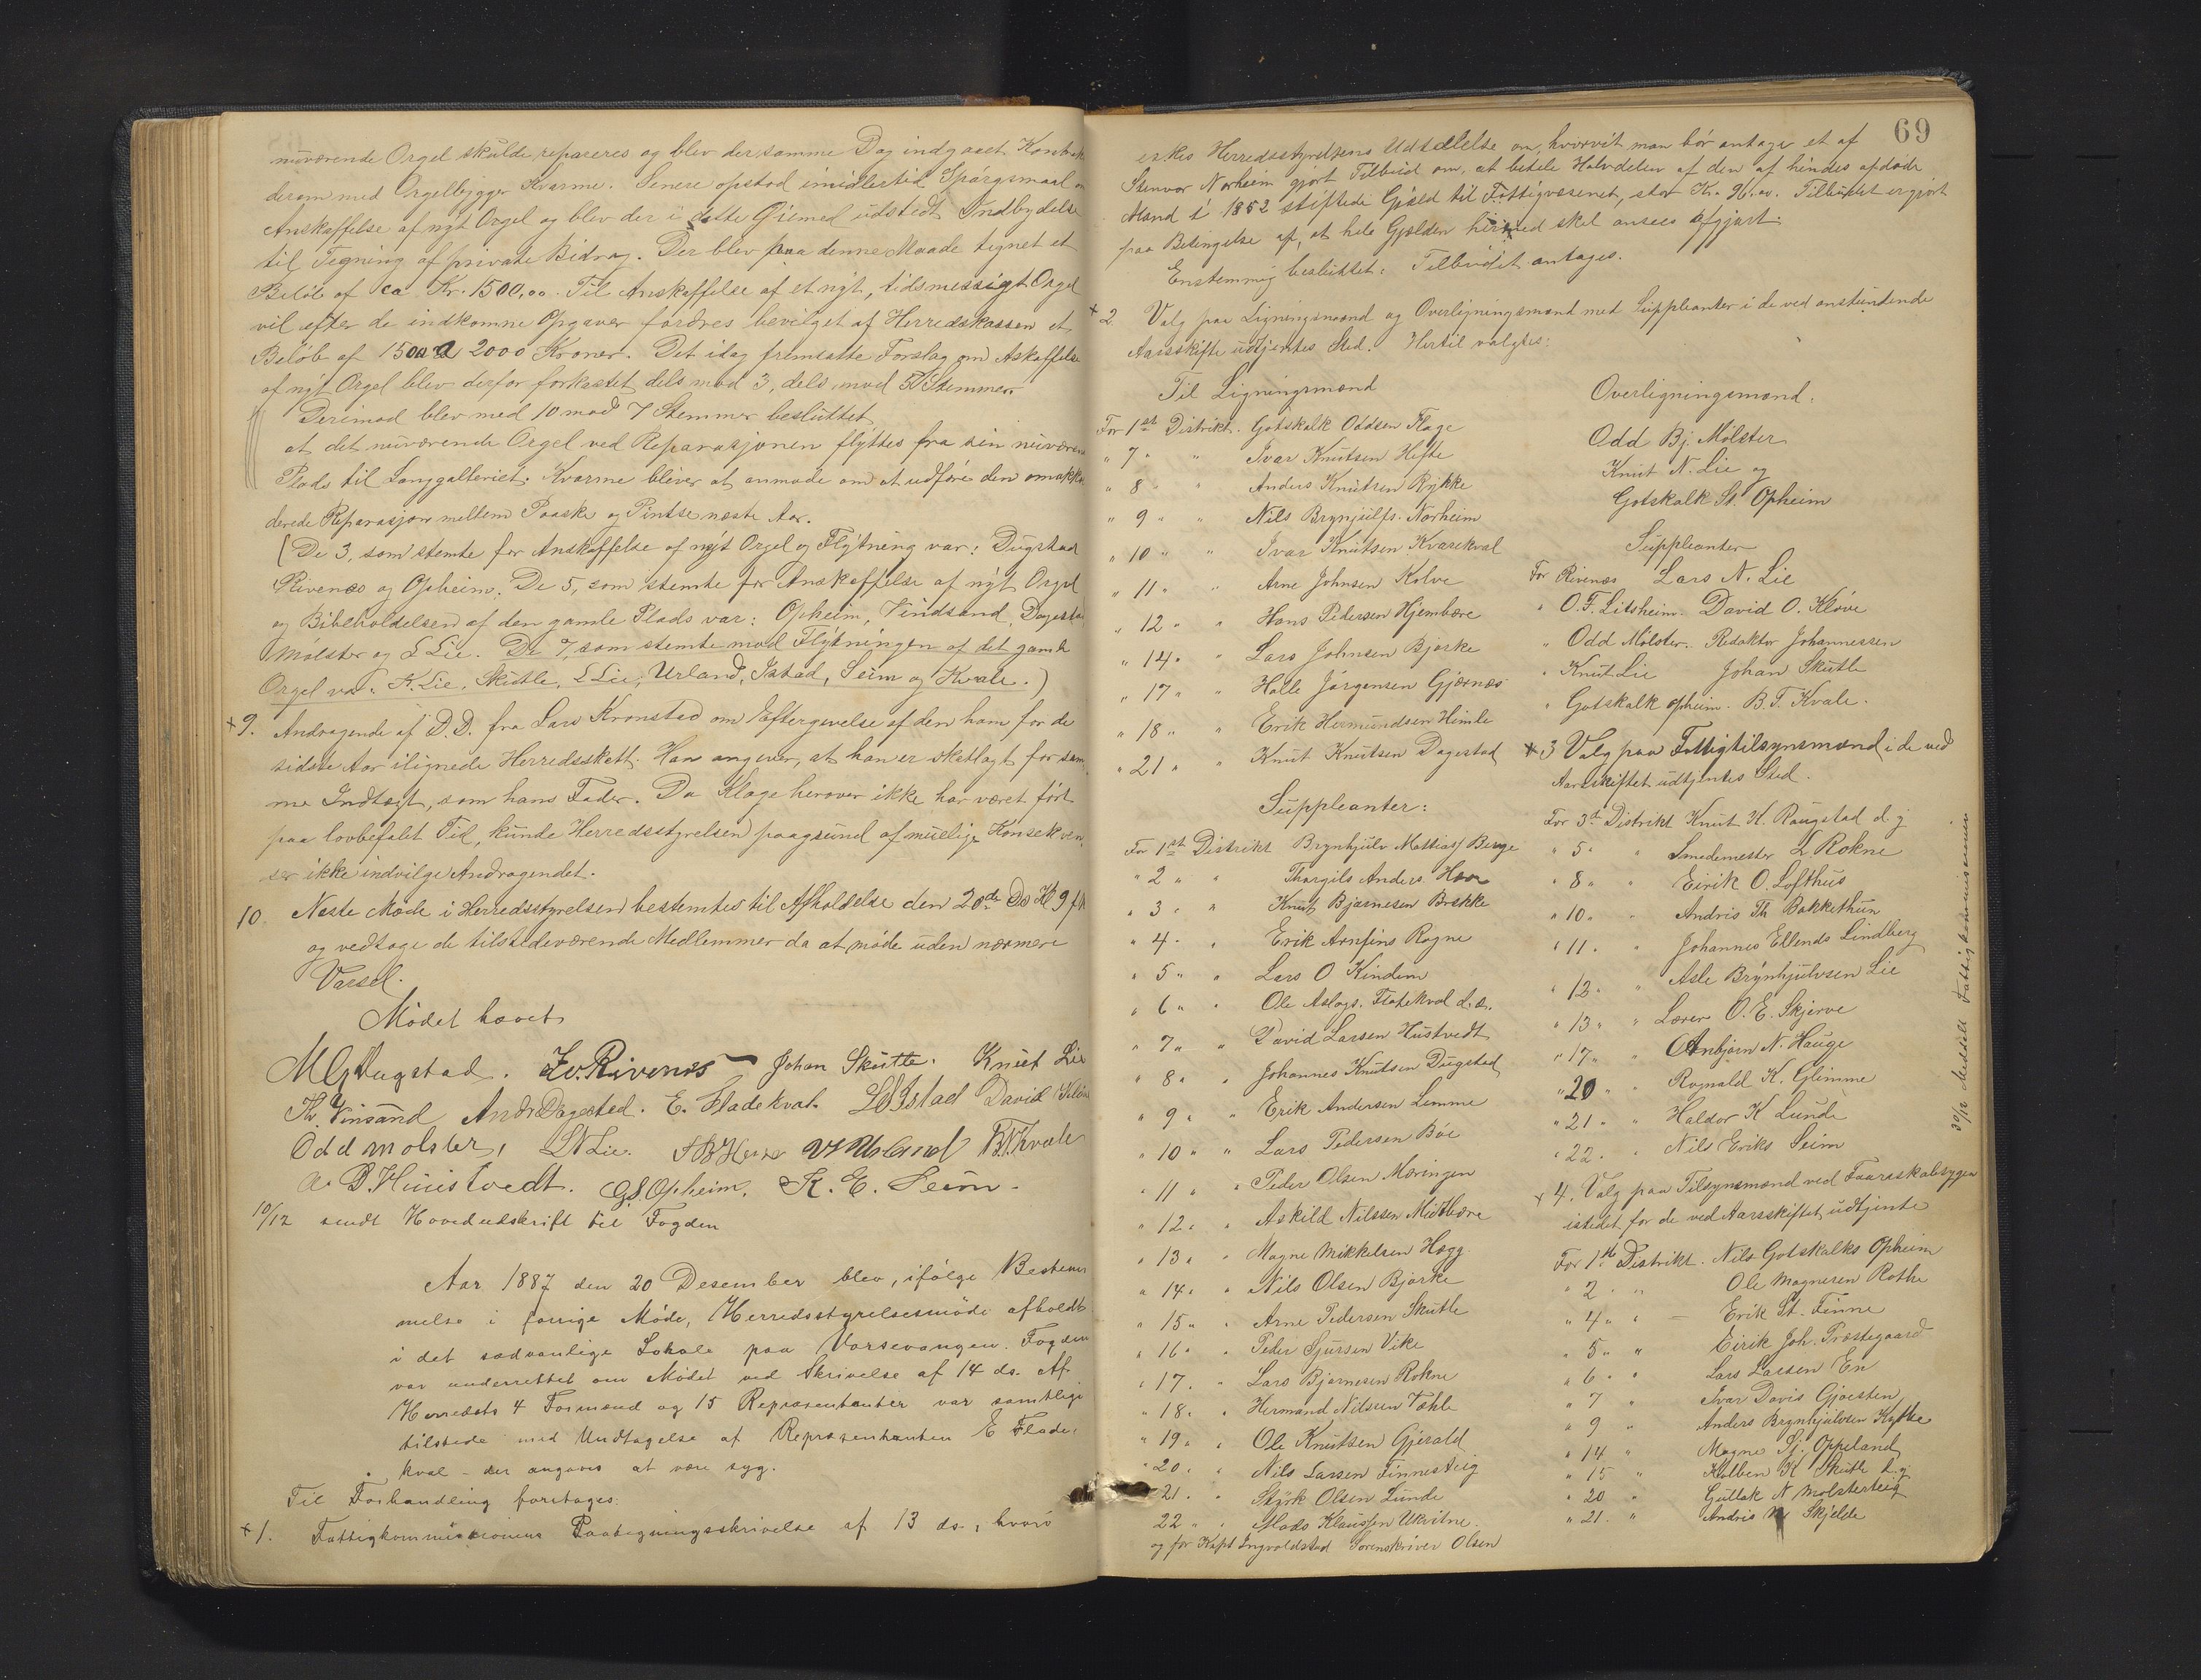 nuværende Orgel skulde repareres og blev der samme Dag indgaaet Kontrakt
derom med Orgelbygger Kvarme. Senere opstod imidlertid Spørgsmaal om
Anskaffelse af nyt Orgel og blev der i dette Øiemed udstedt Indbydelse
til Tegning af private Bidrag. Der blev paa denne Maade tegnet et
Beløb af ca Kr. 1500,00. Til Anskaffelse af et nyt, tidsmessigt Orgel
vil efter de indkomne Opgaver fordres bevilget af Herredskassen et
Beløb af 1500 a 2000 Kroner. Det idag fremsatte Forslag om Askaffelse
af nyt Orgel blev derfor forkastet dels mod 3, dels mod 5 Stemmer.
Derimod blev med 10 mod 7 Stemmer besluttet
at det nuværende Orgel ved Reparasjonen flyttes fra sin nuværende
Plads til Langgalleriet. Kvarme bliver at anmode om at udføre den omakkor
derede Reparasjon mellem Paaske og Pintse næste Aar.
(De 3, som stemte for Anskaffelse af nyt Orgel og Flytning var: Dugstad
Rivenæs og Opheim. De 5, som stemte for Anskaffelse af nyt Orgel
og Bibeholdelsen af den gamle Plads var: Opheim, Vindsand, Dagestad
Mølster og L Lie. De 7, som stemte mod Flytningen af det gamle
Orgel var: K. Lie, Skutle, L Lie, Urland, Istad, Seim og Kvale.)
x 9. Andragende af D.D. fra Lars Kronstad om Eftergivelse af den ham for de
sidste Aar ilignede Herredsskatt. Han angiver, at han er skatlagt for sam
me Indtægt, som hans Fader. Da Klage herover ikke har været ført
paa lovbefalet Tid, kunde Herredsstyrelsen paagrund af mulige Konsekven
ser ikke indvilge Andragendet.
10. Næste Møde i Herredsstyrelsen bestemtes til Afholdelse den 20de Ds Kl 9 fm
og vedtoge de tilstedeværende Medlemmer da at møde uden nærmere
Varsel.
Mødet hævet
M G Dugstad. Iv. Rivenes Johan Skutle. Knut Lie
Th. Vinsand Andr Dagestad. E. Fladekval. L O Istad David Kløve
Odd Mølster, L N Lie. B. T. Kvale
B. Hustvedt. G. S. Opheim. K. E. Seim.
10/12 sendt Hovedudskrift til Fogden
Aar 1887 den 20 Desember blev, ifølge Bestem
melse i forrige Møde, Herredsstyrelsesmøde afholdt
i det sædvanlige Lokale paa Vossevangen. Fogden
var underrettet om Mødet ved Skrivelse af 14 ds. Af
Herredets 4 Formænd og 15 Repræsentanter var samtlige
tilstede med Undtagelse af Repræsentanten E Flade-
kval - der angaves at være syg.
Til Forhandling foretages:
x 1. Fattigkommissionens Paategningsskrivelse af 13 ds., hvori
69
eskes Herredsstyrelsens Udtalelse om, hvorvit man bør antage et af
Stenvor Norheim gjort Tilbud om, at betele Halvdelen af den af hendes afdøde
Mand i 1852 stiftede Gjæld til Fattigvæsenet, stor Kr. Tilbudet er gjort
paa Betingelse af, at hele Gjælden hermed skal ansees afgjort.
Enstemmig besluttet: Tilbudet antages.
x 2. Valg paa Ligningsmænd og Overligningsmænd med Suppleanter i de ved anstundende
Aarsskifte udtjentes Sted. Hertil valgtes:
Til Ligningsmænd
For 1st Distrikt. Gotskalk Oddsen Flage
" 7 " " Ivar Knutsen Hefte
" 8 " " Anders Knutsen Rykke
" 9 " " Nils Brynjulfs. Norheim
" 10 " " Ivar Knutsen Kvarekval
" 11 " " Arne Johnsen Kolve
" 12 " " Hans Pedersen Hjembære
" 14 " " Lars Johnsen Bjørke
" 17 " " Halle Jørgensen Gjærnæs
" 18 " " Erik Hermundsen Himle
" 21 " " Knut Knutsen Dagestad
Suppleanter:
For 1st Distrikt Brynhjulv Mathias Berge
" 2 " " Thorgils Anders
" 3 " " Knut Bjørnesen Brekke
" 4 " " Erik Arnfins Rogne
" 5 " " Lars O Kindem
" 6 " " Ole Aslags. Fladekval d.e.
" 7 " " David Larsen Hustvedt
" 8 " " Johannes Knutsen Dugstad
" 9 " " Erik Andersen Lemme
" 10 " " Lars Pedersen Bøe
" 11 " " Peder Olsen Mæringen
" 12 " " Askild Nilssen Midtbære
" 13 " " Magne Mikkelsen Hægg
" 14 " " Nils Olsen Bjørke
" 15 " " Arne Pedersen Skutle
" 16 " " Peder Sjursen Vike
" 17 " " Lars Bjørnesen Rokne
" 18 " " Hermand Nilssen Tæhle
" 19 " " Ole Knutsen Gjerald
" 20 " " Nils Larsen Finnesteig
21 " " Styrk Olsen Lunde
22 " " Mads Klaussen Ukvitne
og for Kapt Ingvoldstad Sorenskriver Olsen
Overligningsmænd.
Odd Bj. Mølster
Knut N. Lie og
Gotskalk St. Opheim
Suppleanter
For Rivenæs Lars N. Lie
" O. F. Litsheim. David O. Kløve
" Odd Mølster. Redaktør Johannessen
" Knut Lie Johan Skutle
" Gotskalk Opheim. B. T. Kvale.
x 3 Valg paa Fattigtilsynsmænd i de ved
Aarsskiftet udtjentes Sted.
For 3d Distrikt Knut K. Raugstad d. y
" 5 " " Smedemester L. Rokne
" 8 " " Eirik O. Lofthus
" 10 " " Andris Th Bakkethun
" 11 " " Johannes Ellends Lindberg
" 12 " " Asle Brynhjulvsen Lie
" 13 " " Lærer O. E. Skjerve
" 17 " " Anbjørn N. Hauge
" 20 " " Rognald K. Glimme
" 21 " " Haldor K Lunde
" 22 " " Nils Eriks Seim
30/12 Meddelt Fattigkommissionen
x 4. Valg paa Tilsynsmænd ved Faareskabsygen
istedet for de ved Aarsskiftet udtjente
For 1st Distrikt. Nils Gotskalks Opheim
" 2 " " Ole Magnesen Rothe
" 4 " " Erik St. Finne
" 5 " " Eirik Joh. Præstegaard
" 6 " " Lars Larsen En
" 7 " Ivar Davis Gjøsten
" 9 " Anders Brynhjulvsen Kytke
" 14 " Magne Sj. Oppeland
" 15 " Kolben K Skutle d.y
" 20 " Gullak N Mølsterteig
" 21 " Andris N Skjelde